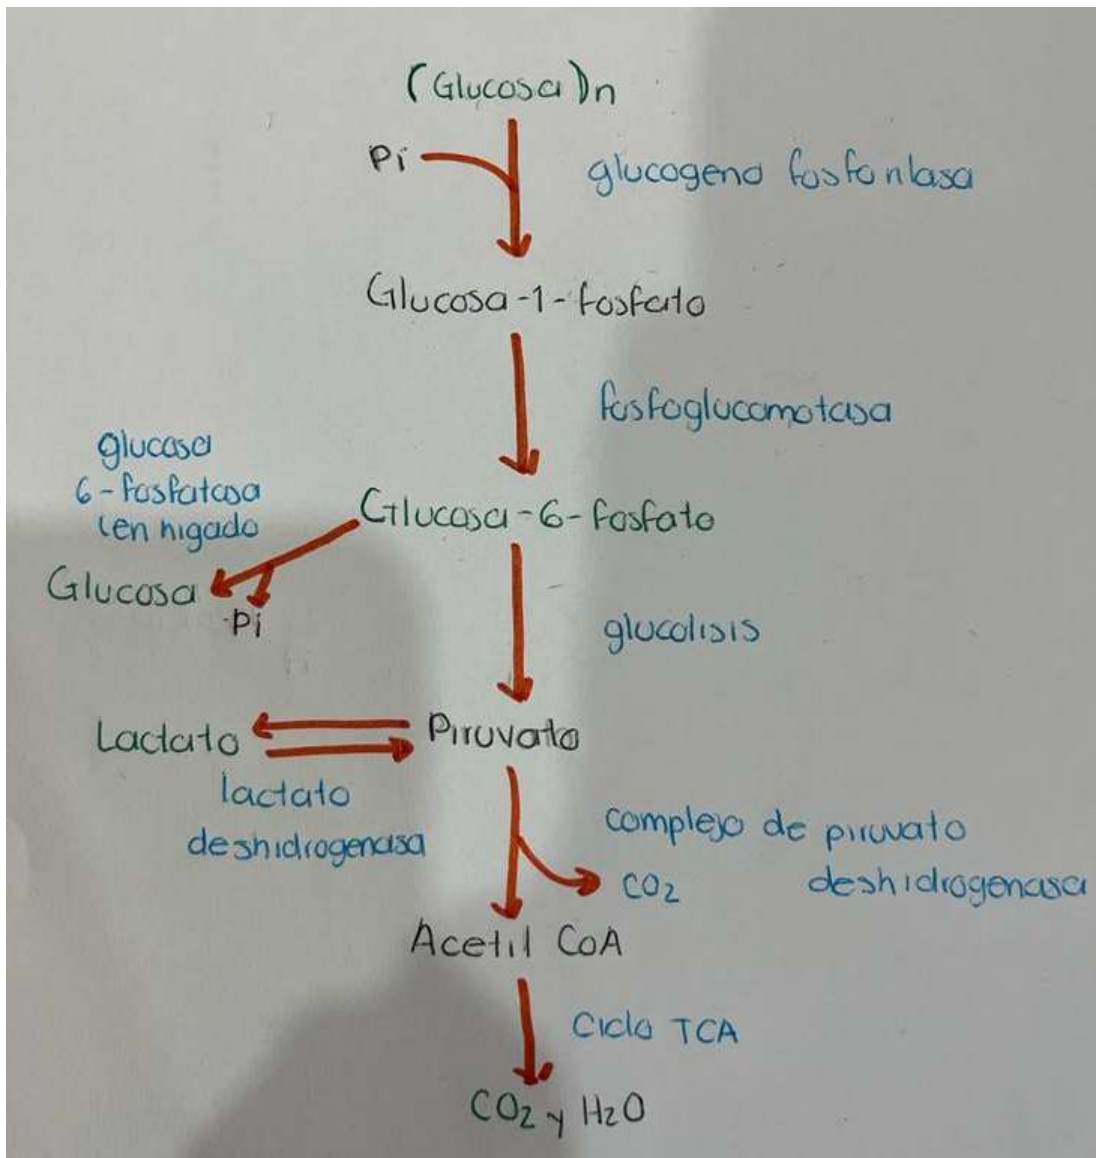 (Glucosa)n
Pi
glucogeno fosforilasa
Glucosa-1-fosfato
fosfoglucomotasa
glucosa
6-fosfatasa
(en higado
Glucosa-6-fosfato
Glucosa
Pi
glucolisis
Lactato
Piruvato
lactato
deshidrogenasa
complejo de piruvato
deshidrogenasa
CO2
Acetil CoA
Ciclo TCA
CO2 y H2O